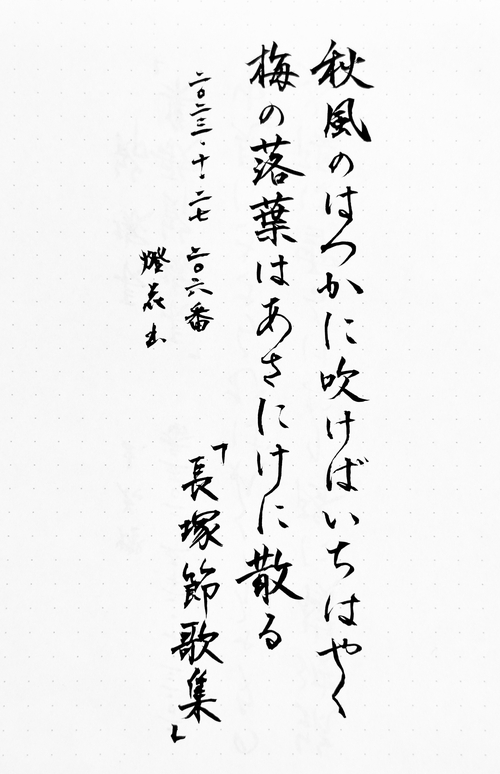 秋風のはつかに吹けばいちはやく
梅の落葉はあさにけに散る
二〇二三、十、二七 二〇六番
『長塚節歌集』
燈花书